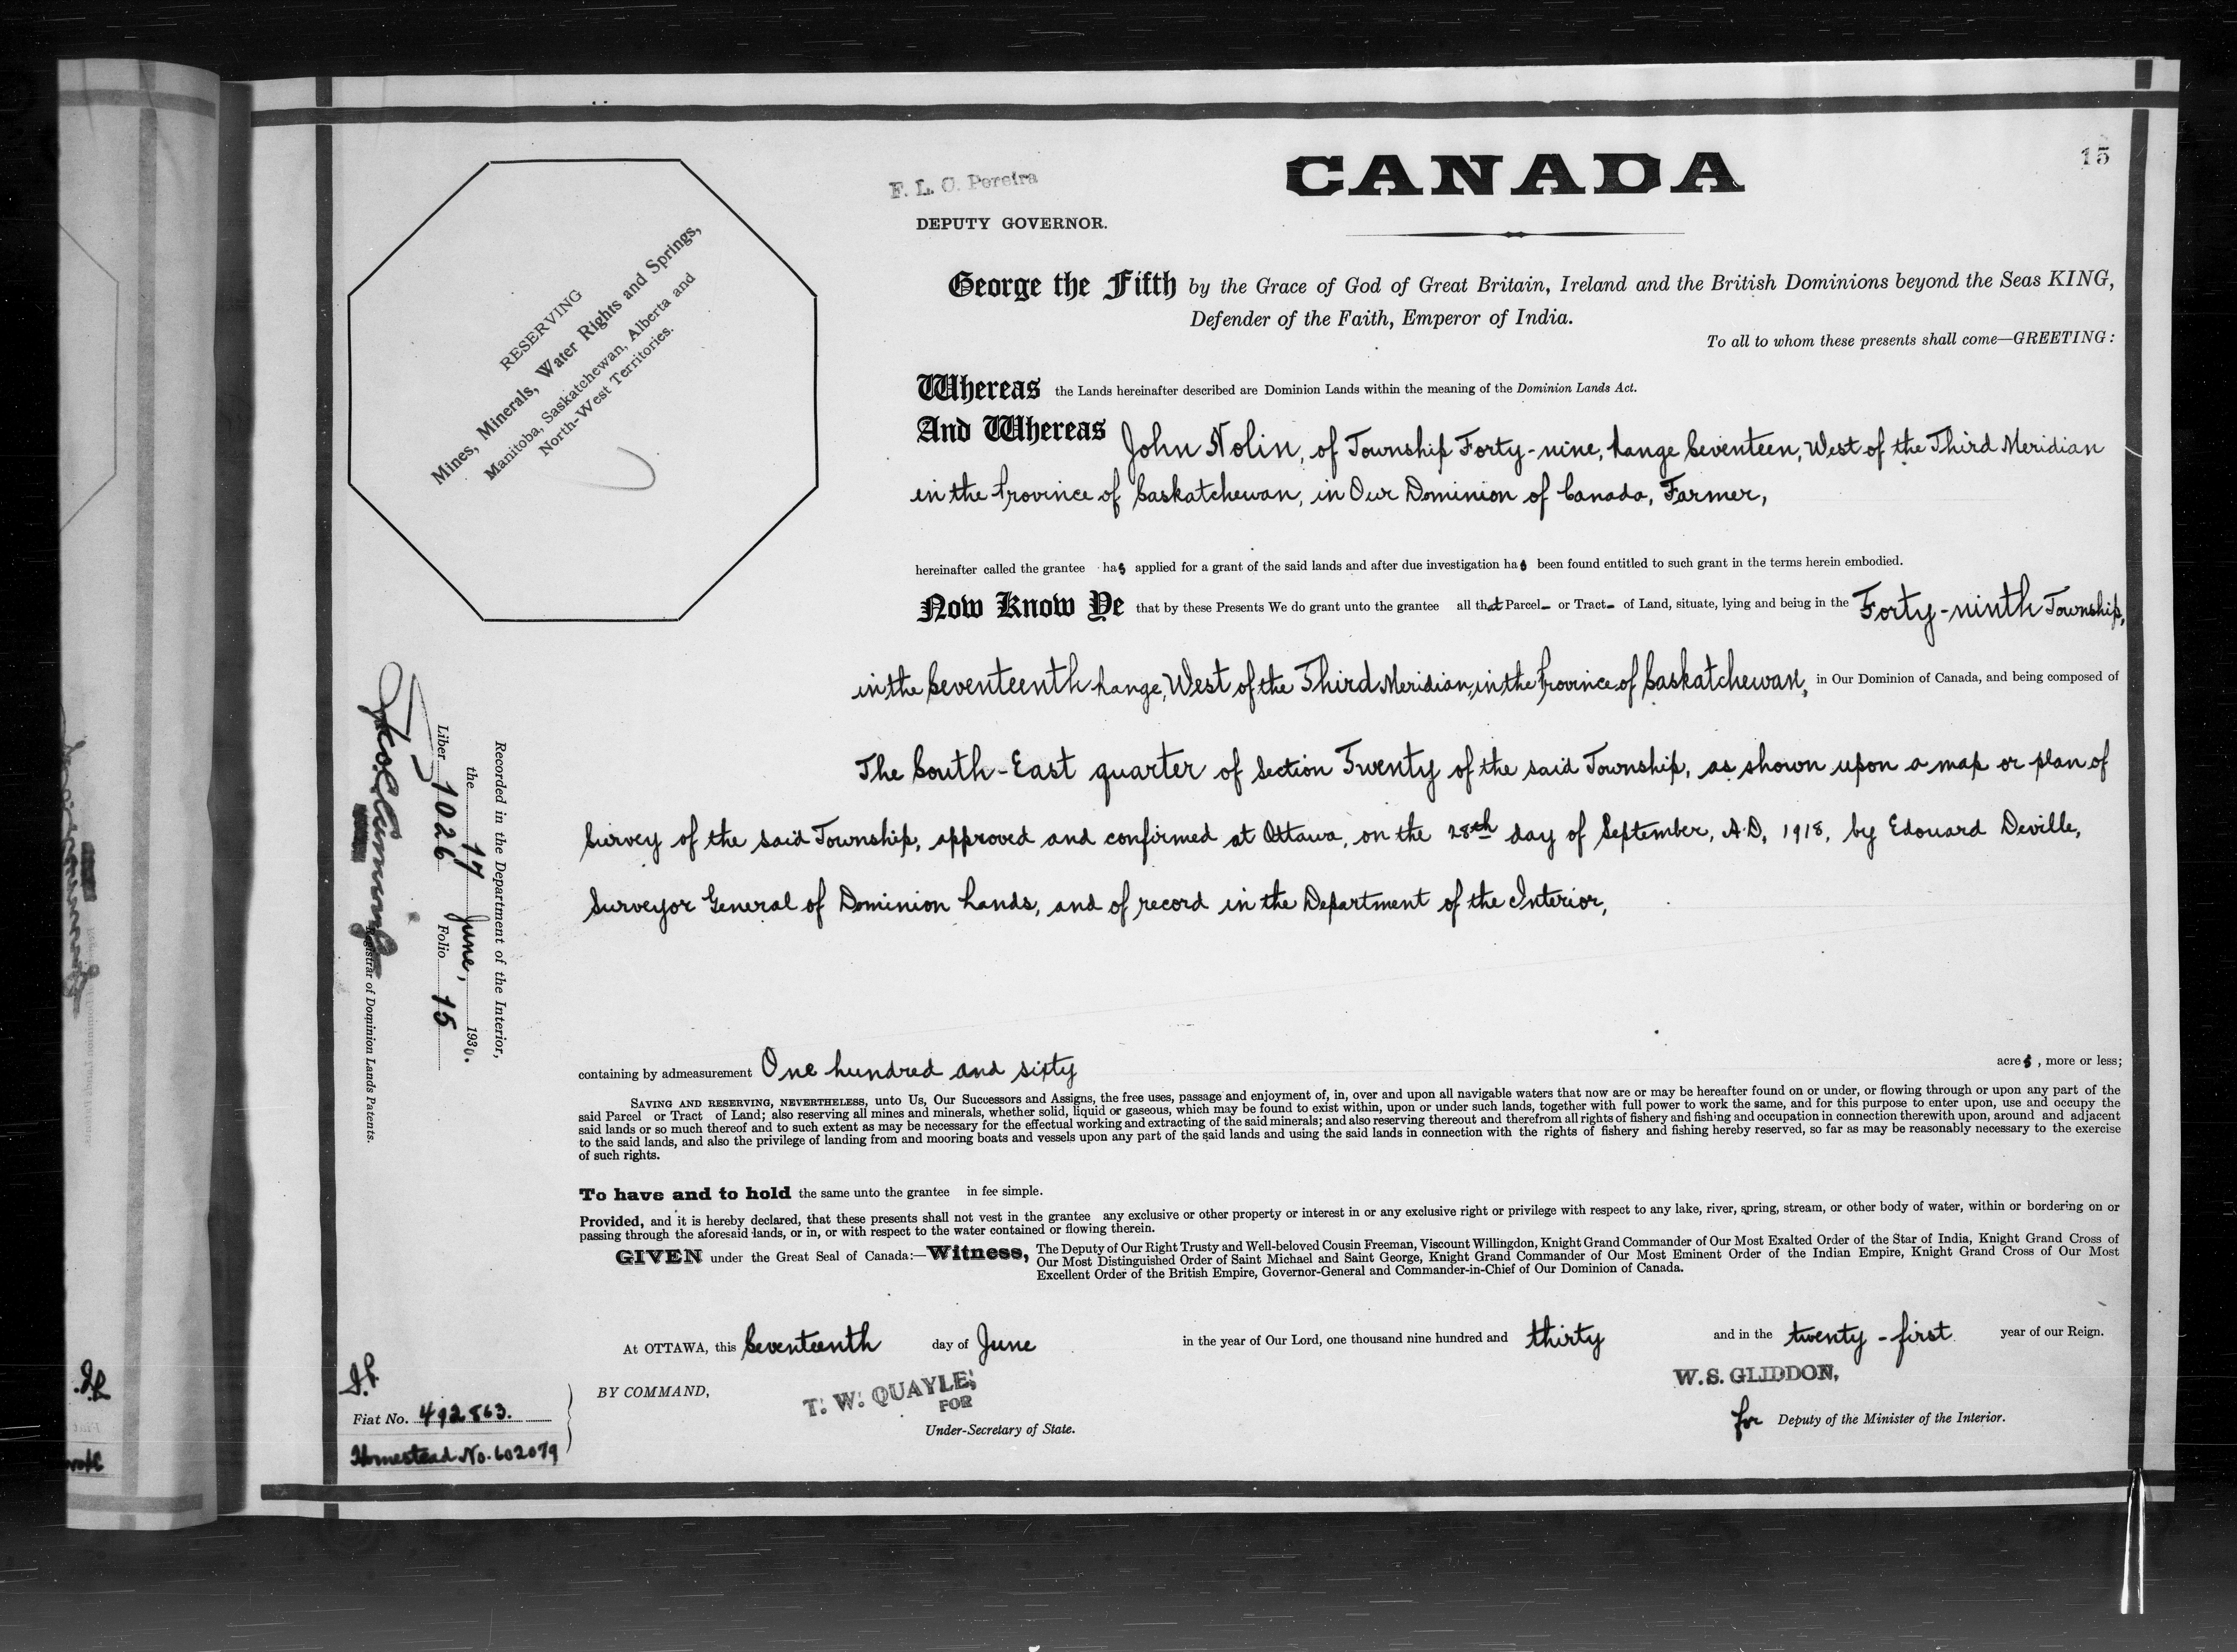 15
CANADA
F. L. C. Pereira
DEPUTY GOVERNOR.
RESERVING
Mines, Minerals, Water Rights and Springs,
Manitoba, Saskatchewan, Alberta and
North-West Territories.
George the Fifth by the Grace of God of Great Britain, Ireland and the British Dominions beyond the Seas KING,
Defender of the Faith, Emperor of India.
To all to whom these presents shall come—GREETING:
Whereas the Lands hereinafter described are Dominion Lands within the meaning of the Dominion Lands Act.
And Whereas John Nolin, of Township Forty-nine, Range Seventeen, West of the Third Meridian
in the Province of Saskatchewan, in Our Dominion of Canada, Farmer,
hereinafter called the grantee has applied for a grant of the said lands and after due investigation has been found entitled to such grant in the terms herein embodied.
Now Know Ye that by these Presents We do grant unto the grantee all that Parcel- or Tract- of Land, situate, lying and being in the Forty-ninth Township,
in the Seventeenth Range, West of the Third Meridian, in the Province of Saskatchewan, in Our Dominion of Canada, and being composed of
The South-East quarter of Section Twenty of the said Township, as shown upon a map or plan of
Survey of the said Township, approved and confirmed at Ottawa, on the 28th day of September, A.D. 1918, by Edouard Deville,
Surveyor General of Dominion Lands, and of record in the Department of the Interior,
Recorded in the Department of the Interior,
the 17 June, 1930.
Liber 1026 Folio 15
Registrar of Dominion Lands Patents.
containing by admeasurement One hundred and sixty acres, more or less;
SAVING AND RESERVING, NEVERTHELESS, unto Us, Our Successors and Assigns, the free uses, passage and enjoyment of, in, over and upon all navigable waters that now are or may be hereafter found on or under, or flowing through or upon any part of the
said Parcel or Tract of Land; also reserving all mines and minerals, whether solid, liquid or gaseous, which may be found to exist within, upon or under such lands, together with full power to work the same, and for this purpose to enter upon, use and occupy the
said lands or so much thereof and to such extent as may be necessary for the effectual working and extracting of the said minerals; and also reserving thereout and therefrom all rights of fishery and fishing and occupation in connection therewith upon, around and adjacent
to the said lands, and also the privilege of landing from and mooring boats and vessels upon any part of the said lands and using the said lands in connection with the rights of fishery and fishing hereby reserved, so far as may be reasonably necessary to the exercise
of such rights.
To have and to hold the same unto the grantee in fee simple.
Provided, and it is hereby declared, that these presents shall not vest in the grantee any exclusive or other property or interest in or any exclusive right or privilege with respect to any lake, river, spring, stream, or other body of water, within or bordering on or
passing through the aforesaid lands, or in, or with respect to the water contained or flowing therein.
GIVEN under the Great Seal of Canada:—Witness, The Deputy of Our Right Trusty and Well-beloved Cousin Freeman, Viscount Willingdon, Knight Grand Commander of Our Most Exalted Order of the Star of India, Knight Grand Cross of
Our Most Distinguished Order of Saint Michael and Saint George, Knight Grand Commander of Our Most Eminent Order of the Indian Empire, Knight Grand Cross of Our Most
Excellent Order of the British Empire, Governor-General and Commander-in-Chief of Our Dominion of Canada.
At OTTAWA, this Seventeenth day of June in the year of Our Lord, one thousand nine hundred and thirty and in the twenty-first year of our Reign.
BY COMMAND,
T. W. QUAYLE,
FOR
Under-Secretary of State.
W. S. GLIDDON,
for Deputy of the Minister of the Interior.
Fiat No. 492863.
Homestead No. 602079